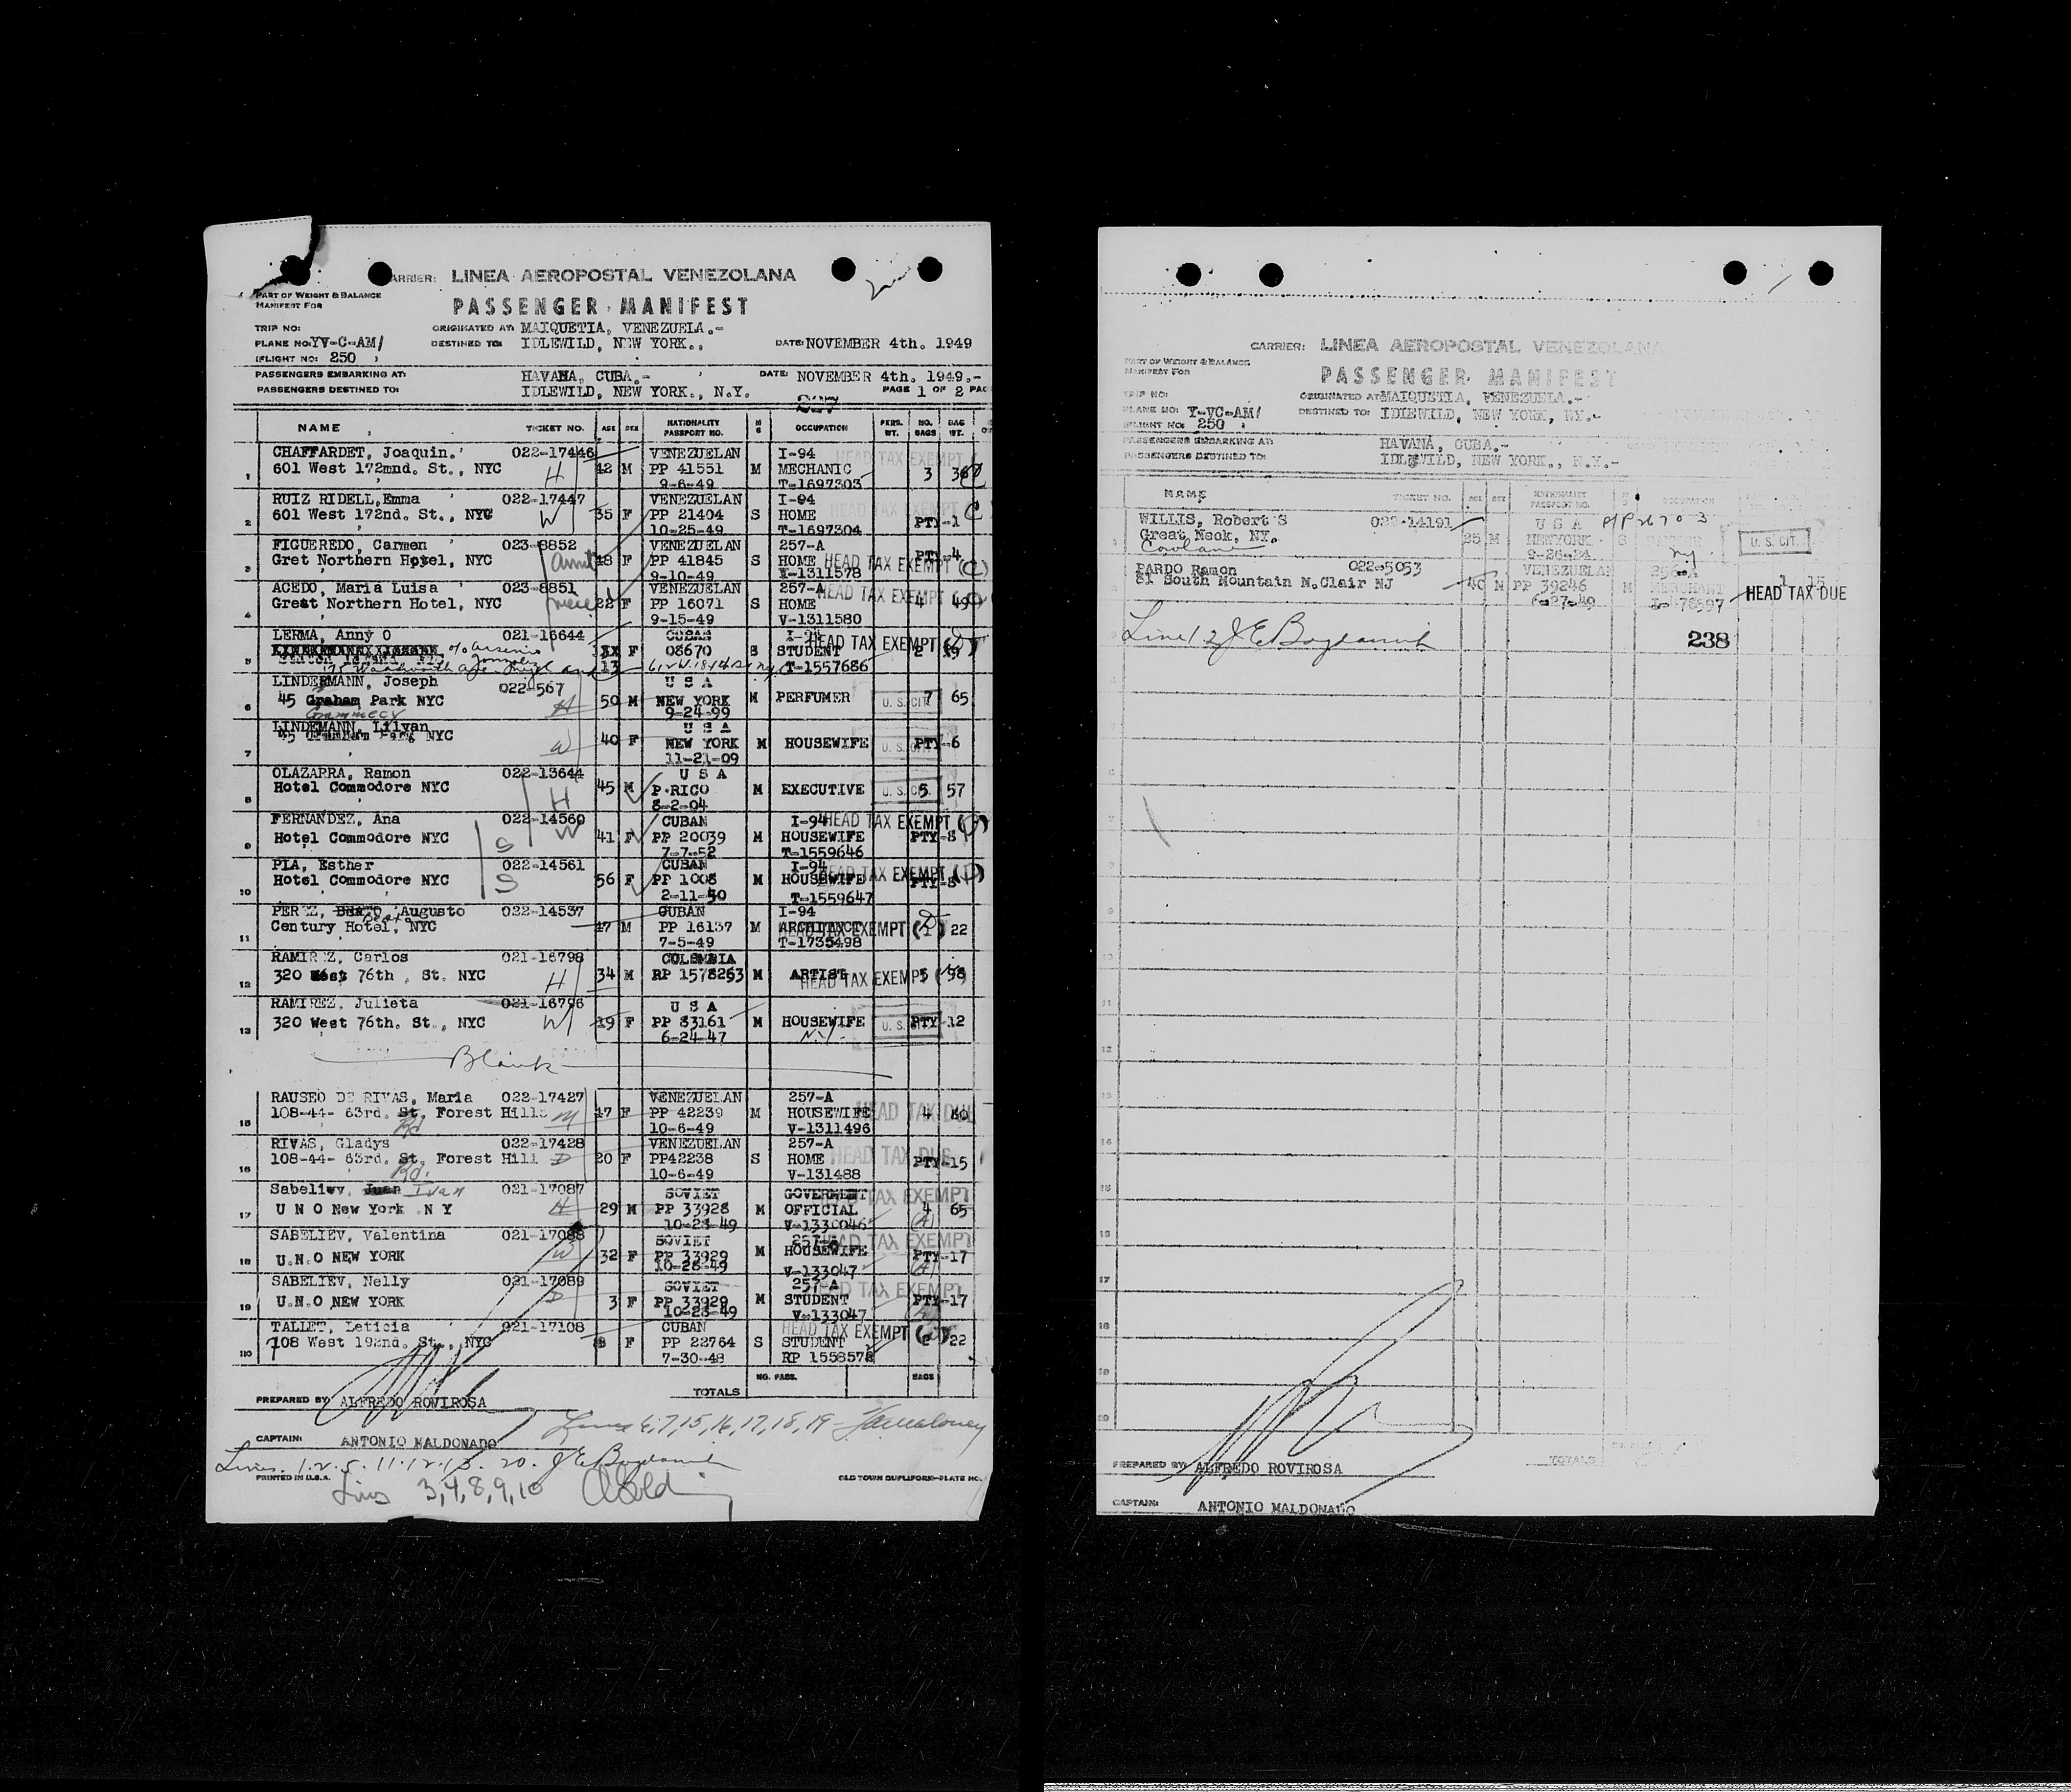 CARRIER: LINEA AEROPOSTAL VENEZOLANA
PART OF WEIGHT & BALANCE
MANIFEST FOR
PASSENGER MANIFEST
TRIP NO: ORIGINATED AT: MAIQUETIA, VENEZUELA.-
PLANE NO: YV-C-AM/ DESTINED TO: IDLEWILD, NEW YORK., DATE: NOVEMBER 4th. 1949
(FLIGHT NO: 250 )
PASSENGERS EMBARKING AT: HAVANA, CUBA.- DATE: NOVEMBER 4th. 1949.-
PASSENGERS DESTINED TO: IDLEWILD, NEW YORK., N.Y. PAGE 1 OF 2
NAME TICKET NO. AGE SEX NATIONALITY PASSPORT NO. M S OCCUPATION PERS. WT. NO. BAGS BAG WT.
CHAFFARDET, Joaquin. 022-17446 VENEZUELAN I-94 HEAD TAX EXEMPT
1 601 West 172mnd. St., NYC H 42 M PP 41551 M MECHANIC 3 36
9-6-49 T-1697303
RUIZ RIDELL, Emma 022-17447 VENEZUELAN I-94 HEAD TAX EXEMPT C
2 601 West 172nd. St., NYC W 35 F PP 21404 S HOME PTY-1
10-25-49 T-1697304
FIGUEREDO, Carmen 023-8852 VENEZUELAN 257-A
3 Gret Northern Hotel, NYC Aunt 48 F PP 41845 S HOME HEAD TAX EXEMPT (C) PTY-4
9-10-49 V-1311578
ACEDO, Maria Luisa 023-8851 VENEZUELAN 257-A HEAD TAX EXEMPT
4 Great Northern Hotel, NYC niece 22 F PP 16071 S HOME 4 49
9-15-49 V-1311580
LERMA, Anny O 021-16644 CUBAN I-94 HEAD TAX EXEMPT (D)
5 c/o Arsenio Gonzalez F 08670 S STUDENT 2 19
13 T-1557686
LINDERMANN, Joseph 022-567 U S A
6 45 Graham Park NYC H 50 M NEW YORK M PERFUMER U. S. CIT. 7 65
9-24-99
LINDEMANN, Lilyan U S A
7 45 Graham Park NYC W 40 F NEW YORK M HOUSEWIFE U. S. CIT. PTY-6
11-21-09
OLAZARRA, Ramon 022-13644 U S A
8 Hotel Commodore NYC H 45 M P.RICO M EXECUTIVE U. S. CIT. 5 57
8-2-04
FERNANDEZ, Ana 022-14560 CUBAN I-94 HEAD TAX EXEMPT (D)
9 Hotel Commodore NYC S W 41 F PP 20039 M HOUSEWIFE PTY-8
7-7-52 T-1559646
PIA, Esther 022-14561 CUBAN I-94 HEAD TAX EXEMPT (D)
10 Hotel Commodore NYC S 56 F PP 1008 M HOUSEWIFE PTY-8
2-11-50 T-1559647
PEREZ, Augusto 022-14537 CUBAN I-94
11 Century Hotel, NYC 47 M PP 16137 M ARCHITECT HEAD TAX EXEMPT (D) 22
7-5-49 T-1735498
RAMIREZ, Carlos 021-16798 COLOMBIA
12 320 West 76th , St. NYC H 34 M RP 1578263 M ARTIST HEAD TAX EXEMPT 5 98
RAMIREZ, Julieta 021-16796 U S A
13 320 West 76th. St., NYC W 19 F PP 83161 M HOUSEWIFE U. S. CIT. PTY-12
6-24-47 N.Y.
Blank
RAUSEO DE RIVAS, Maria 022-17427 VENEZUELAN 257-A
15 108-44- 63rd. St. Forest Hills M 47 F PP 42239 M HOUSEWIFE HEAD TAX DUE 4 80
Rd 10-6-49 V-1311496
RIVAS, Gladys 022-17428 VENEZUELAN 257-A
16 108-44- 63rd. St. Forest Hill D 20 F PP42238 S HOME HEAD TAX DUE PTY-15
Rd. 10-6-49 V-131488
Sabeliev, Juan Ivan 021-17087 SOVIET GOVERMENT HEAD TAX EXEMPT
17 U N O New York N Y H 29 M PP 33928 M OFFICIAL 4 65
10-28-49 V-1330046
SABELIEV, Valentina 021-17088 SOVIET 257-A HEAD TAX EXEMPT
18 U.N.O NEW YORK W 32 F PP 33929 M HOUSEWIFE PTY-17
10-28-49 V-133047
SABELIEV, Nelly 021-17089 SOVIET 257-A HEAD TAX EXEMPT
19 U.N.O NEW YORK D 3 F PP 33929 M STUDENT PTY-17
10-28-49 V-133047
TALLET, Leticia 021-17108 CUBAN HEAD TAX EXEMPT
708 West 192nd. St., NYC 8 F PP 22764 S STUDENT 2 22
7-30-48 RP 1558578
NO. PASS. BAGS
TOTALS
PREPARED BY: ALFREDO ROVIROSA
Lines 6,7,15,16,17,18,19 -
CAPTAIN: ANTONIO MALDONADO
Lines. 1. 2. 5. 11. 12. 13. 20.
PRINTED IN U.S.A. OLD TOWN DUPLIFORM-PLATE NO.
Lines 3,4,8,9,10
CARRIER: LINEA AEROPOSTAL VENEZOLANA
PART OF WEIGHT & BALANCE
MANIFEST FOR
PASSENGER MANIFEST
TRIP NO: ORIGINATED AT: MAIQUETIA, VENEZUELA.-
PLANE NO: Y-VC-AM/ DESTINED TO: IDLEWILD, NEW YORK, NY.-
(FLIGHT NO: 250
PASSENGERS EMBARKING AT: HAVANA, CUBA.-
PASSENGERS DESTINED TO: IDLEWILD, NEW YORK., N.Y.-
NAME TICKET NO. AGE SEX NATIONALITY PASSPORT NO. OCCUPATION
WILLIS, Robert S 022-14191 U S A
Great Neck, NY. 25 M NEWYORK S NY U. S. CIT.
9-26-24
PARDO Ramon 022-5053 VENEZUELAN 256-A
81 South Mountain N.Clair NJ 40 M PP 39246 M MERCHANT HEAD TAX DUE
6-27-49
Line 1, 2 238
TOTALS
PREPARED BY: ALFREDO ROVIROSA
CAPTAIN: ANTONIO MALDONADO